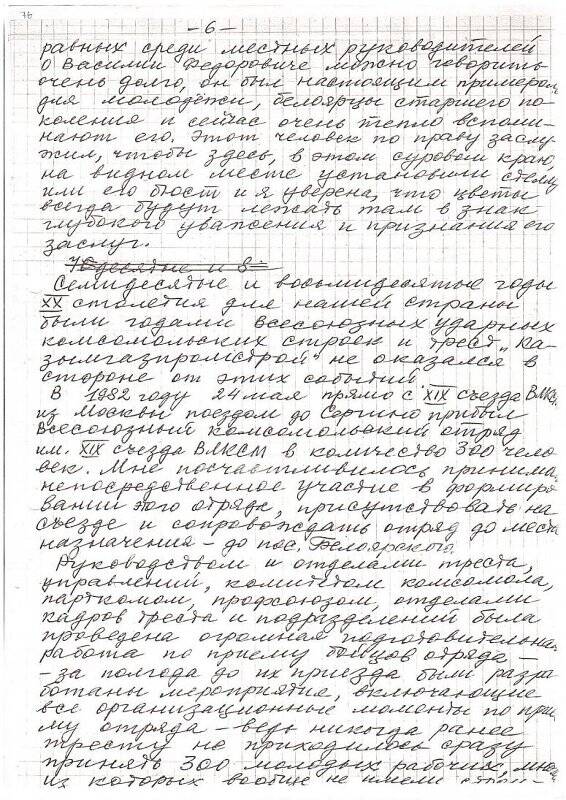 76
-6-
равных среди местных руководителей
О Василии Федоровиче можно говорить
очень долго, он был настоящим примером
для молодёжи, белоярцы старшего по-
коления и сейчас очень тепло вспоми-
нают его. Этот человек по праву заслу
жил, чтобы здесь, в этом суровом краю,
на видном месте установили стелу
или его бюст и я уверена, что цветы
всегда будут лежать там в знак
глубокого уважения и признания его
заслуг.
Семидесятые и восьмидесятые годы
XX столетия для нашей страны
были годами Всесоюзных ударных
комсомольских строек и трест „Ка-
зымгазпромстрой" не оказался в
стороне от этих событий.
В 1982 году 24 мая прямо с XIX съезда ВЛКСМ
из Москвы поездом до Сергино прибыл
Всесоюзный комсомольский отряд
им. XIX съезда ВЛКСМ в количество 300 чело
век. Мне посчастливилось принима
непосредственное участие в формиро
вании этого отряда, присутствовать на
съезде и сопровождать отряд до места
назначения - до пос. Белоярского.
Руководством и отделами треста,
управлений, комитетом комсомола,
парткомом, профсоюзом, отделами
кадров треста и подразделений была
проведена огромная подготовительная
работа по приему бойцов отряда -
-за полгода до их приезда были разра
ботаны мероприятия, включающие
все организационные моменты по при
му отряда - ведь никогда ранее
тресту не приходилось сразу
принять 300 молодых рабочих, многи
из которых вообще не имели